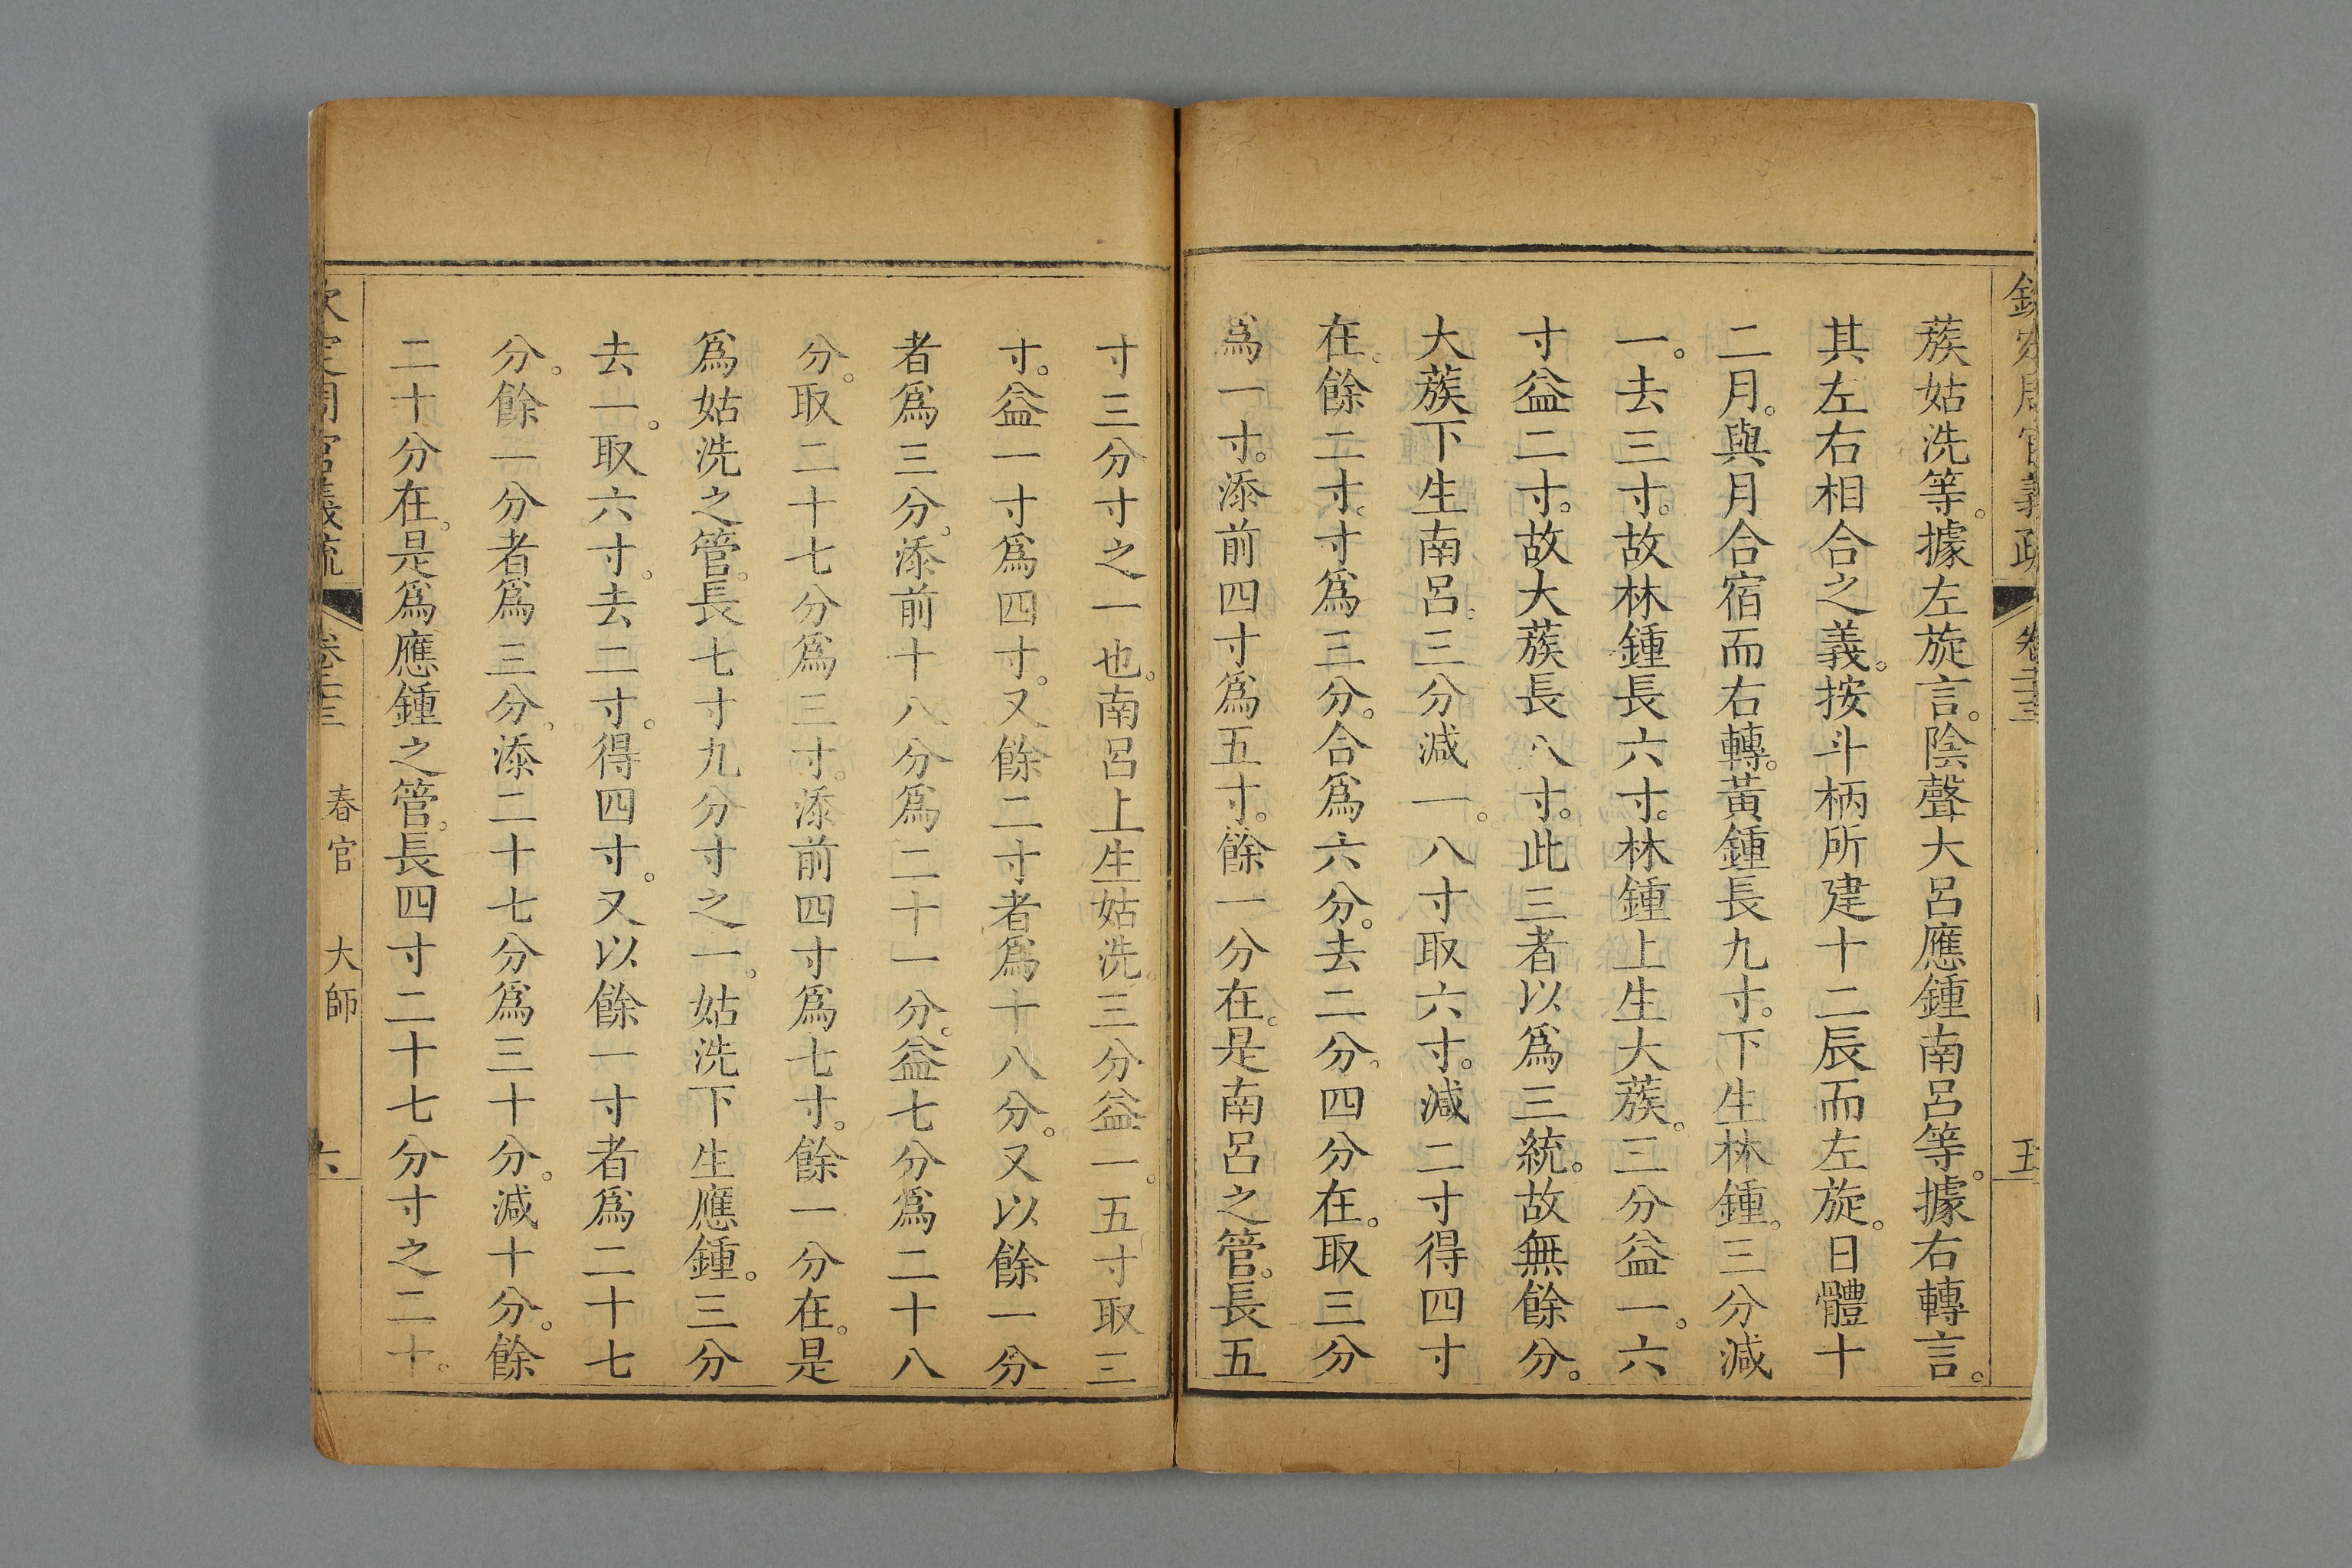 欽定周官義疏 卷二十三 五
蔟姑洗等。據左旋言。陰聲大呂應鍾南呂等。據右轉言。
其左右相合之義。按斗柄所建十二辰而左旋。日體十
二月。與月合宿而右轉。黃鍾長九寸。下生林鍾。三分減
一。去三寸。故林鍾長六寸。林鍾上生大蔟。三分益一。六
寸益二寸。故大蔟長八寸。此三者以爲三統。故無餘分。
大蔟下生南呂。三分減一。八寸取六寸。減二寸得四寸
在。餘二寸。寸爲三分。合爲六分。去二分。四分在。取三分
爲一寸。添前四寸爲五寸。餘一分在。是南呂之管。長五
寸三分寸之一也。南呂上生姑洗。三分益一。五寸取三
寸。益一寸爲四寸。又餘二寸者爲十八分。又以餘一分
者爲三分。添前十八分爲二十一分。益七分爲二十八
分。取二十七分爲三寸。添前四寸爲七寸。餘一分在。是
爲姑洗之管。長七寸九分寸之一。姑洗下生應鍾。三分
去一。取六寸。去二寸。得四寸。又以餘一寸者爲二十七
分。餘一分者爲三分。添二十七分爲三十分。減十分。餘
二十分在。是爲應鍾之管。長四寸二十七分寸之二十。
欽定周官義疏 卷二十三 春官 大師 六